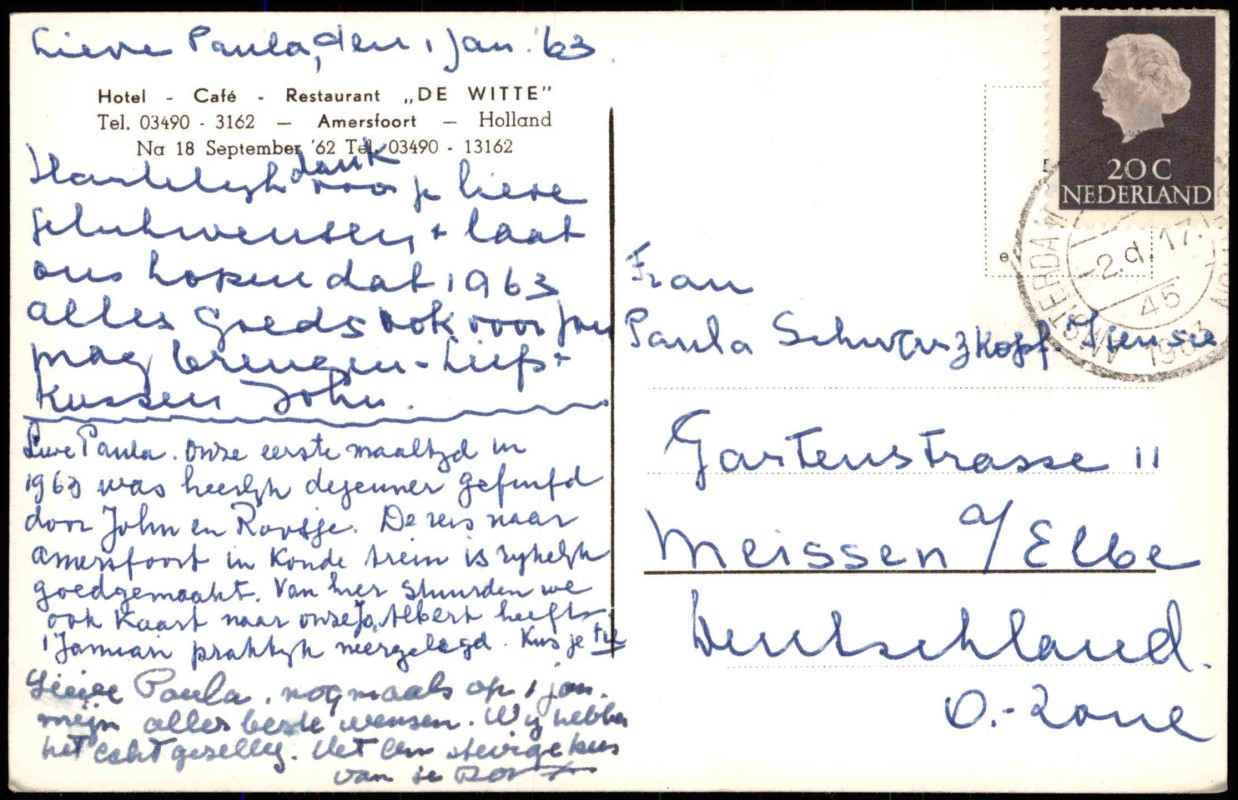 Lieve Paula, den 1 Jan. '63.
Hotel - Café - Restaurant „DE WITTE"
Tel. 03490 - 3162 — Amersfoort — Holland
Na 18 September '62 Tel. 03490 - 13162
Hartelijk dank voor je lieve
gelukwensen, + laat
ons hopen dat 1963
alles goeds ook voor jou
mag brengen - Liefs +
kussen John.
Lieve Paula. Onze eerste maaltijd in
1963 was heerlijk dejeuner
door John en Roosje. De reis naar
Amersfoort in koude trein is rijkelijk
goedgemaakt. Van hier stuurden we
ook kaart naar onze Jo, Albert heeft
1 Januari praktijk neergelegd. Kus je
Lieve Paula, nogmaals op 1 jan.
mijn aller beste wensen. Wij hebben
het echt gezellig. Met een stevige kus
van je
20 C
NEDERLAND
AMSTERDAM
-2.d.17.
45
1963
Frau
Paula Schwarzkopf-
Gartenstrasse 11
Meissen a/Elbe
Deutschland.
O.-Zone